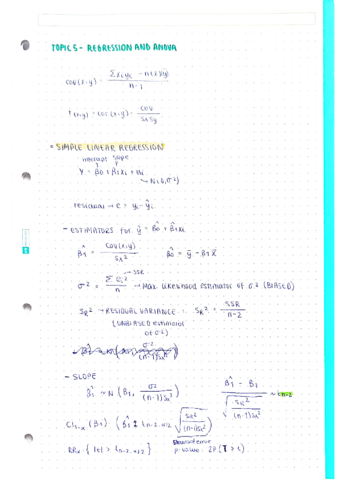 TOPIC 5 - REGRESSION AND ANOVA
cov(x,y) = Σxiyi - n(x̄ȳ) / n-1
r(x,y) = cor(x,y) = cov / SxSy
• SIMPLE LINEAR REGRESSION
intercept slope
Y = β0 + β1xi + ui
↳ N(0,σ²)
residual → e = yi - ŷi
- ESTIMATORS for ŷ = β̂0 + β̂1xi
β̂1 = cov(x,y) / Sx² β̂0 = ȳ - β1x̄
σ² = Σei² / n → SSR → Max likelihood estimator of σ² (BIASED)
SR² → RESIDUAL VARIANCE : SR² = SSR / n-2
(UNBIASED estimator
of σ²)
- SLOPE
β̂1 ~ N (β1, σ² / (n-1)Sx²) β̂1 - β1 / √(SR² / (n-1)Sx²) ~ tn-2
CI1-α (β1) = (β̂1 ± tn-2,α/2 √(SR² / (n-1)Sx²))
RRα { |t| > tn-2,α/2 } p-value: 2P(T > t)